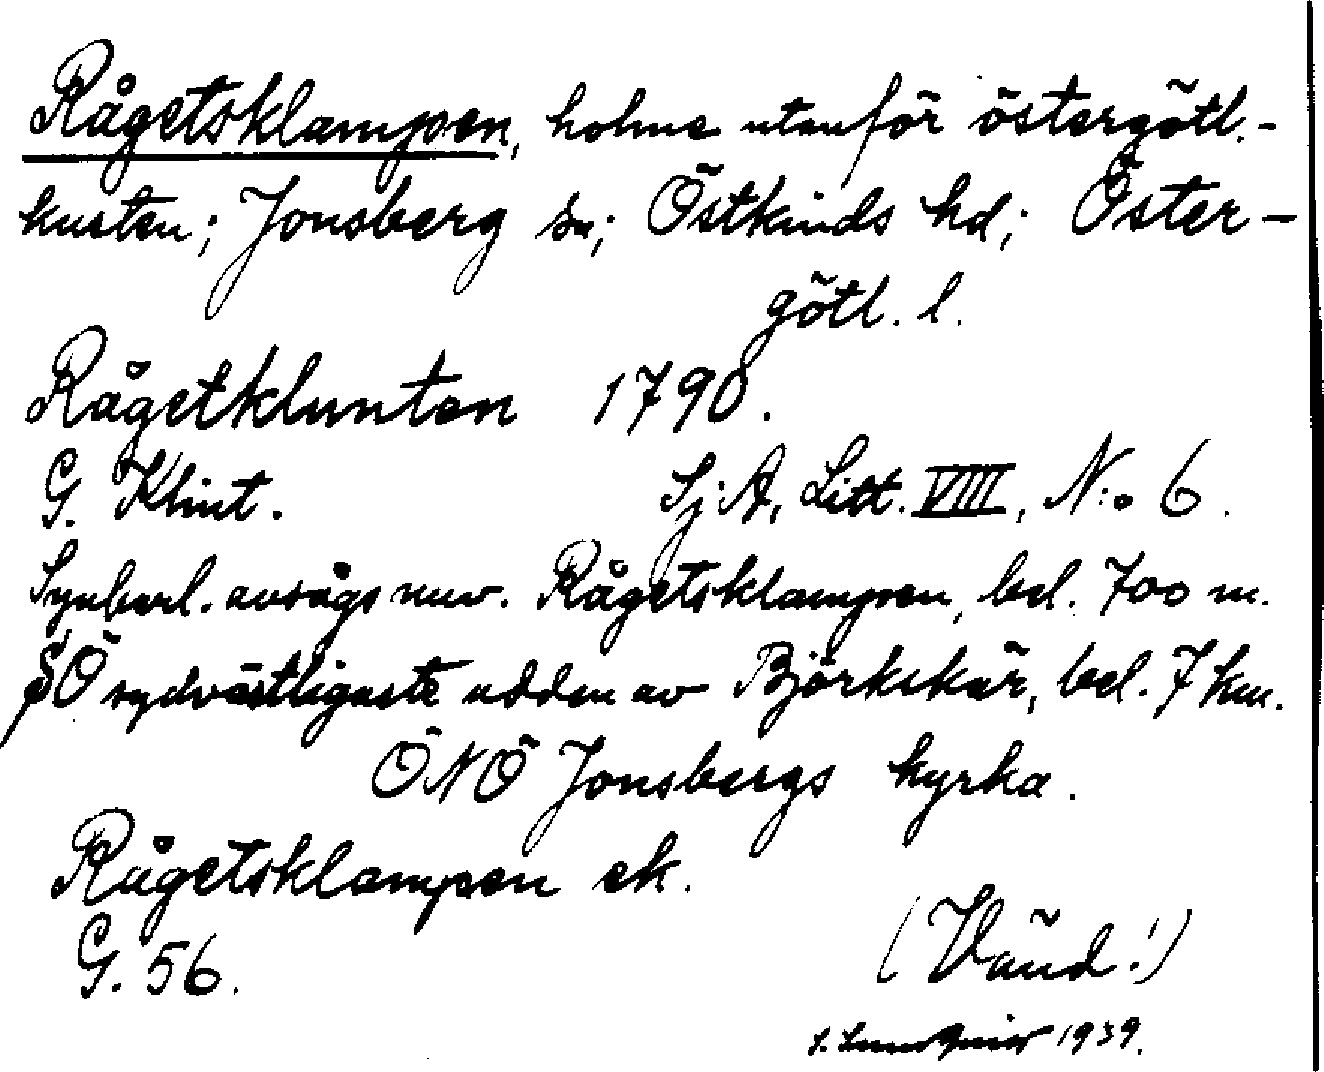 Rågetsklampen, holme utanför östergötl.-
kusten; Jonsberg sn; Östkinds hd; Öster-
götl. l.
Rågetklunten 1790.
G. Klint. Sj.A, Litt. VIII, N:o 6.
Synbarl. avsågs nuv. Rågetsklampen, bel. 700 m.
SO sydvästligaste udden av Björkskär, bel. 7 km.
ÖNÖ Jonsbergs kyrka.
Rågetsklampen ek.
G. 56.
(Vänd!)
1939.